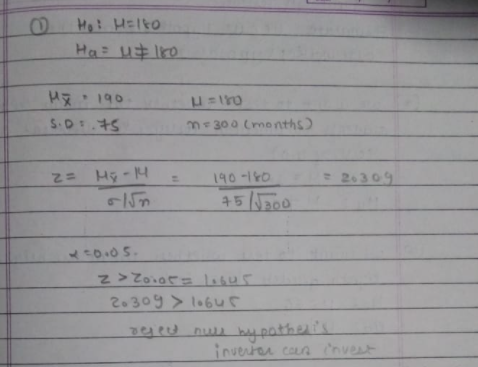 ① H₀: μ=180
Ha = μ≠180
μx̄ = 190 μ=180
S.D = .75 n=300 (months)
z = μx̄ - μ / σ/√n = 190-180 / 75/√300 = 2.309
α=0.05.
z > z0.05 = 1.645
2.309 > 1.645
reject null hypothesis
investor can invest